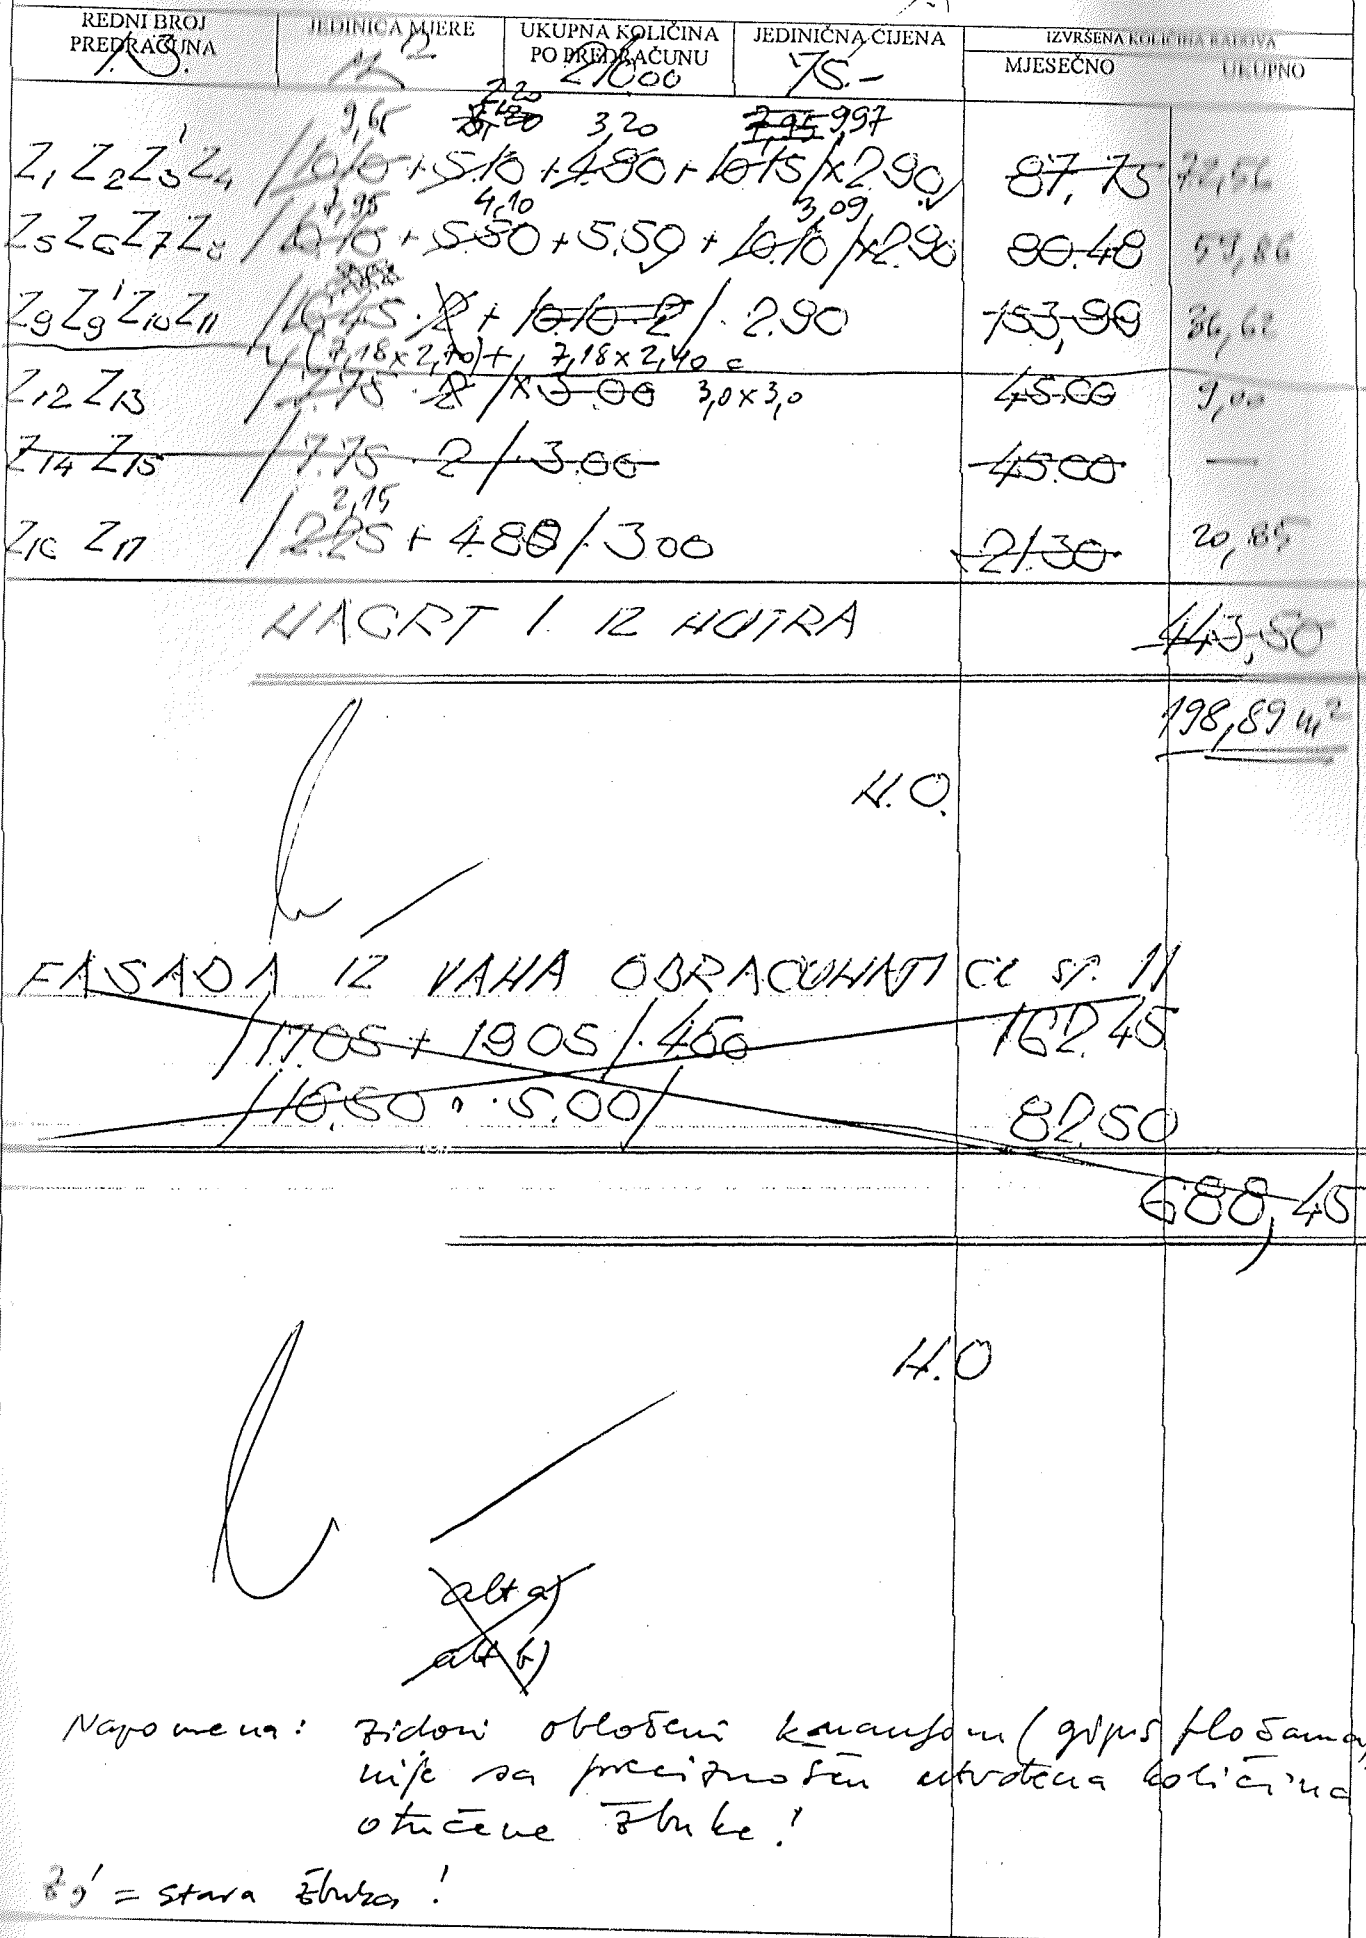 REDNI BROJ PREDRAČUNA JEDINICA MJERE UKUPNA KOLIČINA PO PREDRAČUNU JEDINIČNA CIJENA IZVRŠENA KOLIČINA RADOVA
MJESEČNO UKUPNO
1.3. M2 21000 75.-
9,65 2,20 3,20 7,95 9,97
Z1 Z2 Z3' Z4 /10.10 + 5.10 + 4.90 + 10.15/ x 2.90/ 87,75 72,56
7,95 4,10 3,09
Z5 Z6 Z7 Z8 /10.10 + 5.50 + 5.50 + 10.10/ x 2.90 80.48 59,86
Z9 Z9' Z10 Z11 /16.45 . 2 + 10.10 . 2/ . 2.90 153,99 36,62
(7,18 x 2,70) + 7,18 x 2,40 =
Z12 Z13 /7.75 . 2/ x 3.00 3,0 x 3,0 45.00 9,00
Z14 Z15 /7.75 . 2/ . 3.00 45.00 —
2,15
Z16 Z17 /2.25 + 4.80/ . 3 00 21.30 20,85
NACRT 1. IZ NUTRA 443,50
198,89 m2
N.O.
FASADA IZ VANA OBRAČUNATI CL ST. 11
/17.05 + 19 05/ . 450 162.45
/16.50 . 5.00/ 82.50
688,45
N.O
alt a)
alt b)
Napomena: zidovi obloženi knaufom (gips pločama,
nije sa preciznošću utvrđena količina
otučene žbuke!
Z9' = stara žbuka!